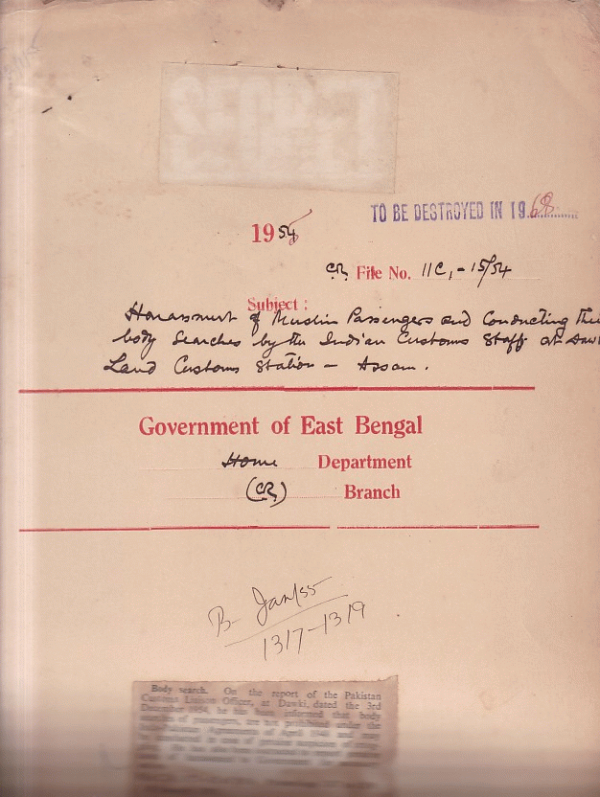 TO BE DESTROYED IN 1968
1954
CR. File No. 11C,-15/54
Subject:
Harassment of Muslim Passengers and Conducting their
body Searches by the Indian Customs Staff at Dawki
Land Customs Station - Assam.
Government of East Bengal
Home Department
(CR) Branch
B- Jan/55
1317-1319
Body search. On the report of the Pakistan
Customs Liaison Officer, at Dawki, dated the 3rd
December 1954, he has been informed that body
searches of passengers, are not prohibited under the
Agreements of April 1948 and may